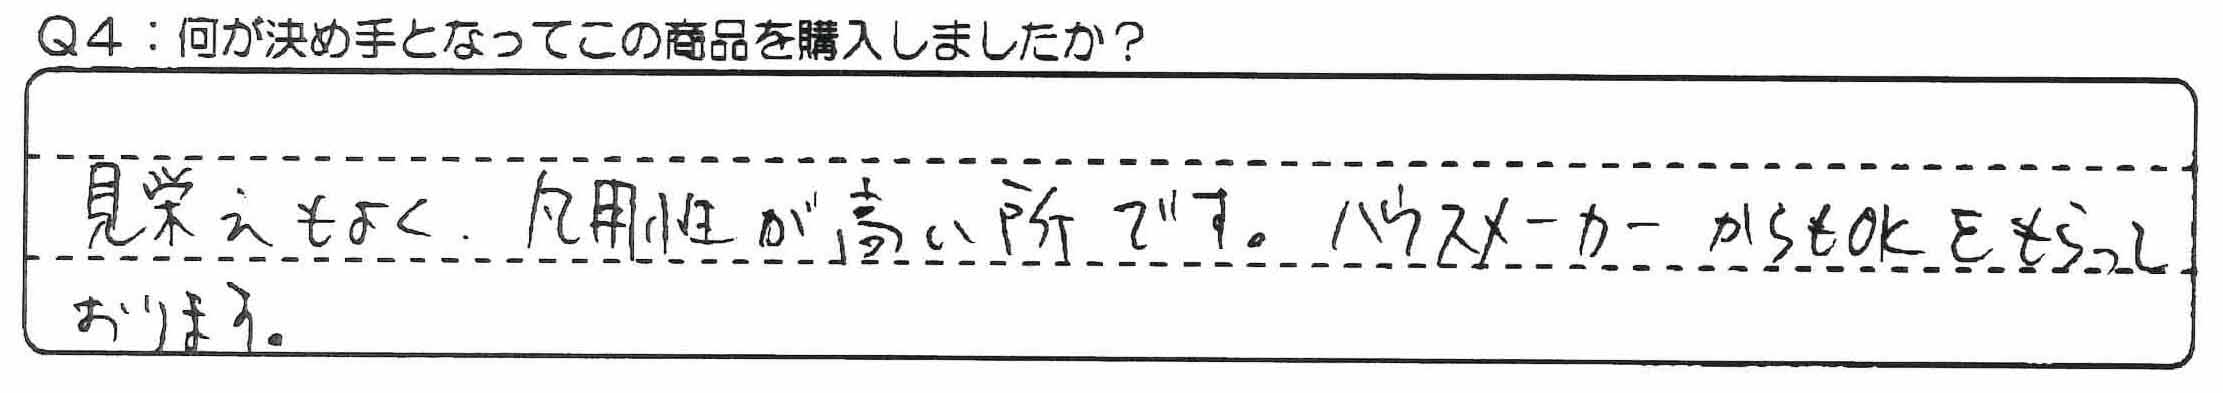 Q4：何が決め手となってこの商品を購入しましたか？
見栄えもよく、凡用性が高い所です。ハウスメーカーからもOKをもらって
おります。